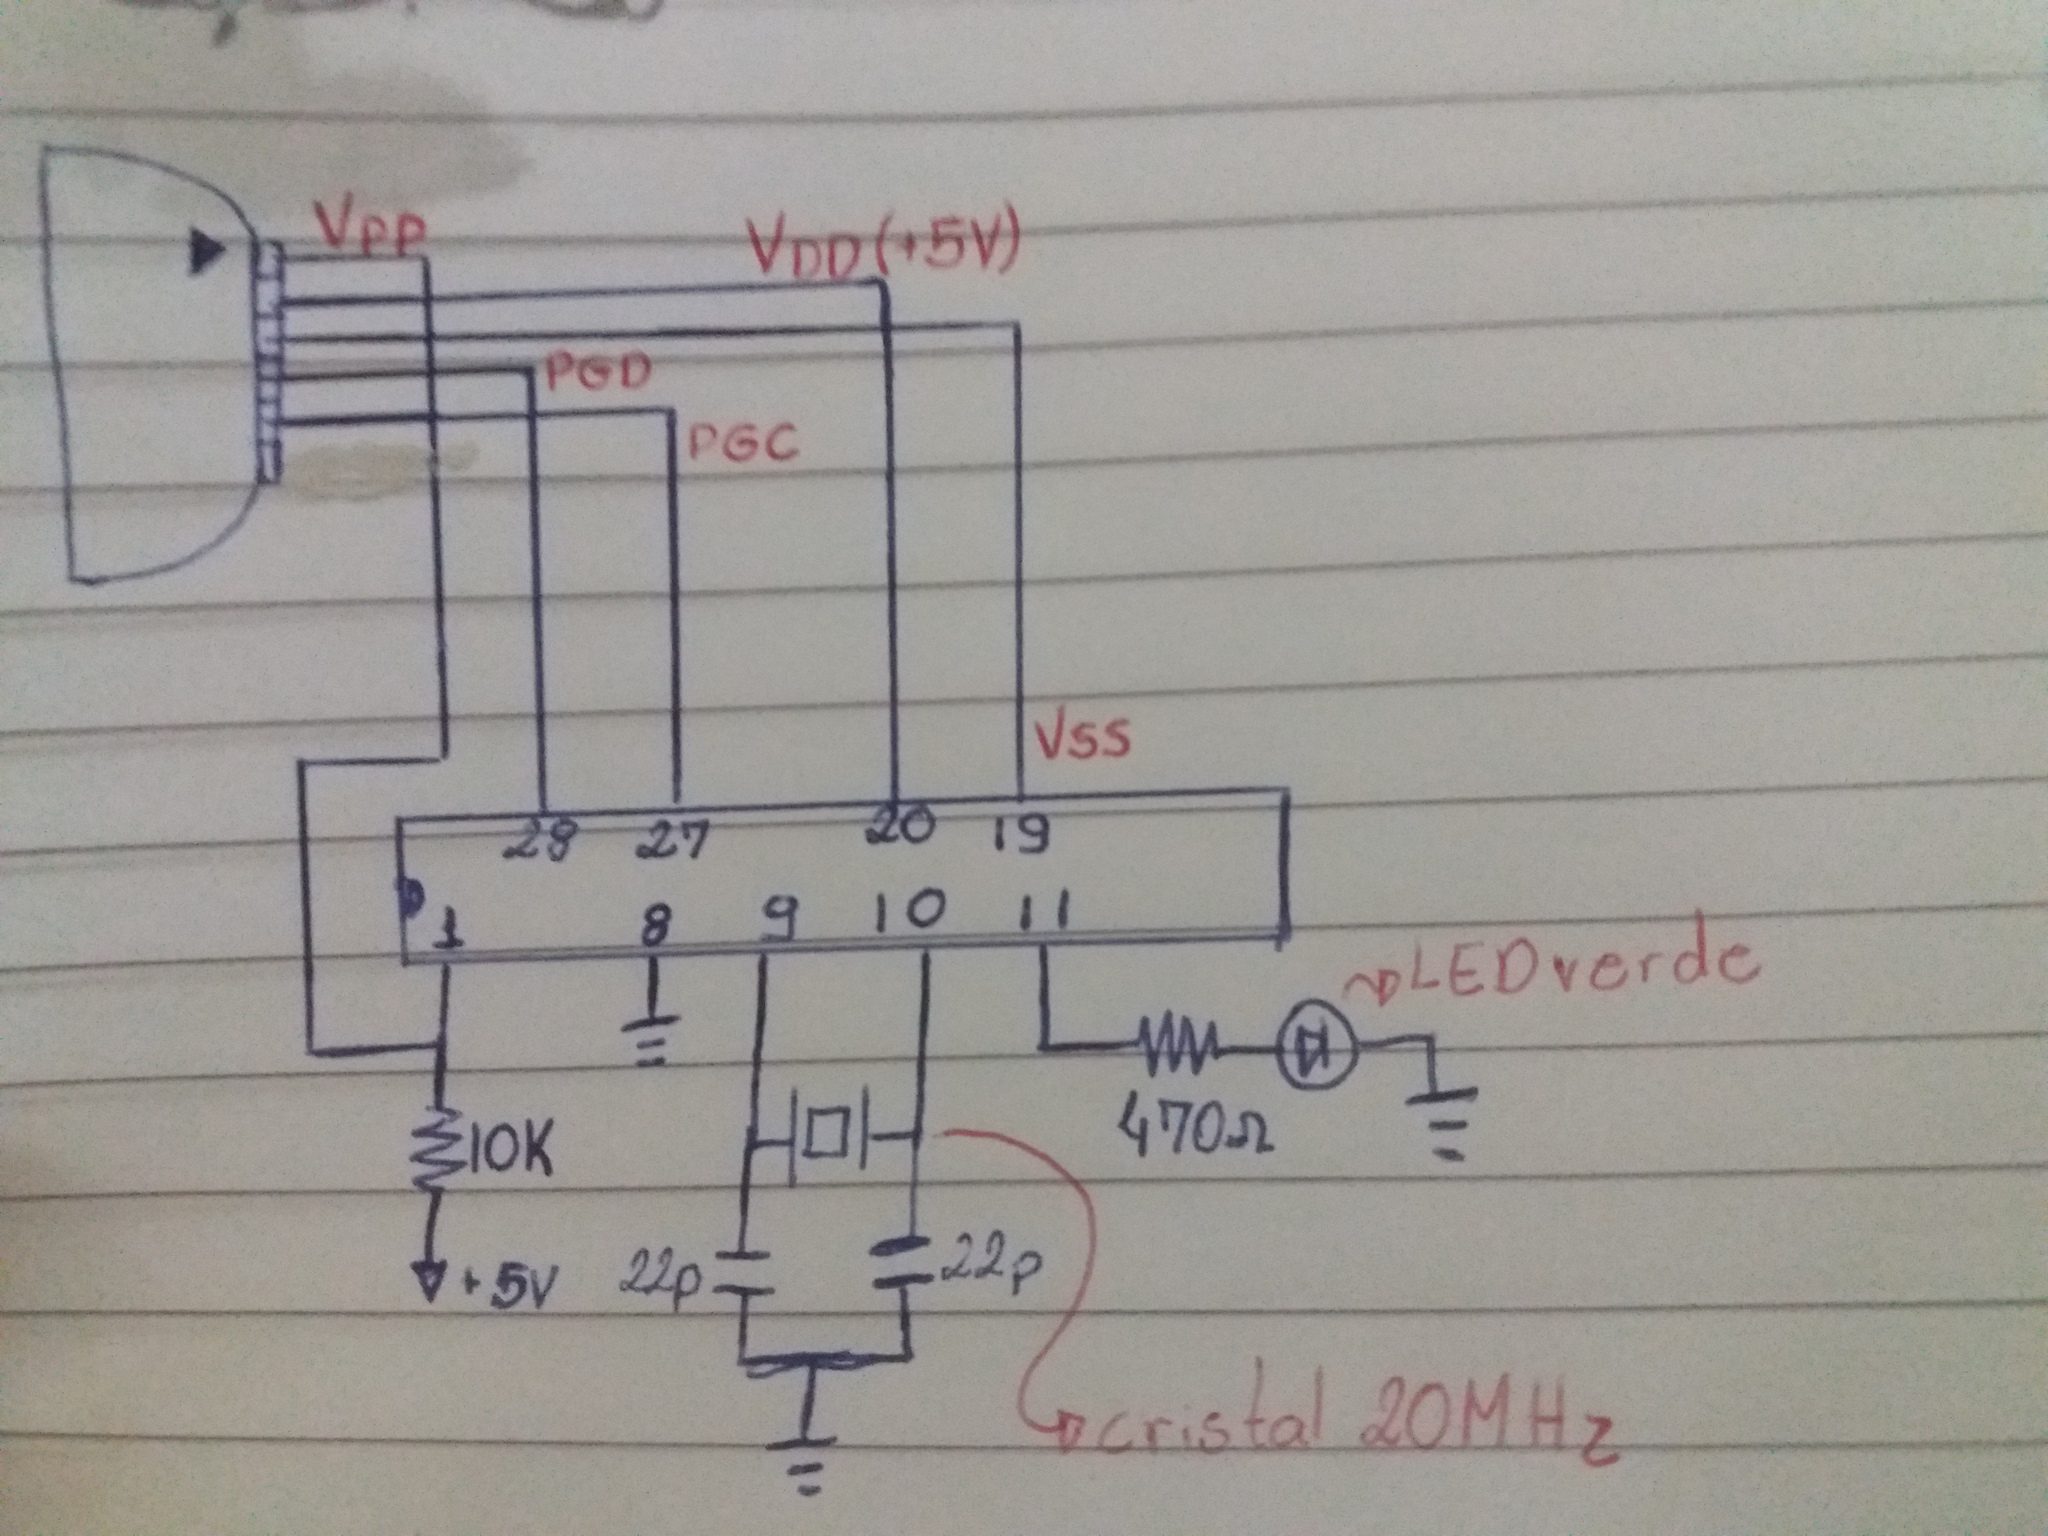 VPP
VDD (+5V)
PGD
PGC
VSS
28 27 20 19
1 8 9 10 11
LED verde
470Ω
10K
+5V
22p 22p
cristal 20MHz